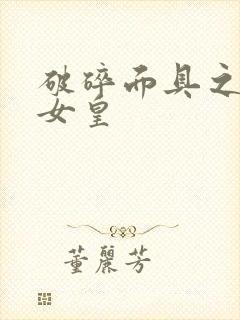 破碎而具之
女皇
董丽芳